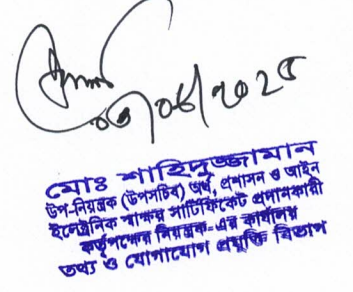 ০৩/০৪/২০২৫
মোঃ শাহিদুজ্জামান
উপ-নিয়ন্ত্রক (উপসচিব) অর্থ, প্রশাসন ও আইন
ইলেক্ট্রনিক স্বাক্ষর সার্টিফিকেট প্রদানকারী
কর্তৃপক্ষের নিয়ন্ত্রক-এর কার্যালয়
তথ্য ও যোগাযোগ প্রযুক্তি বিভাগ